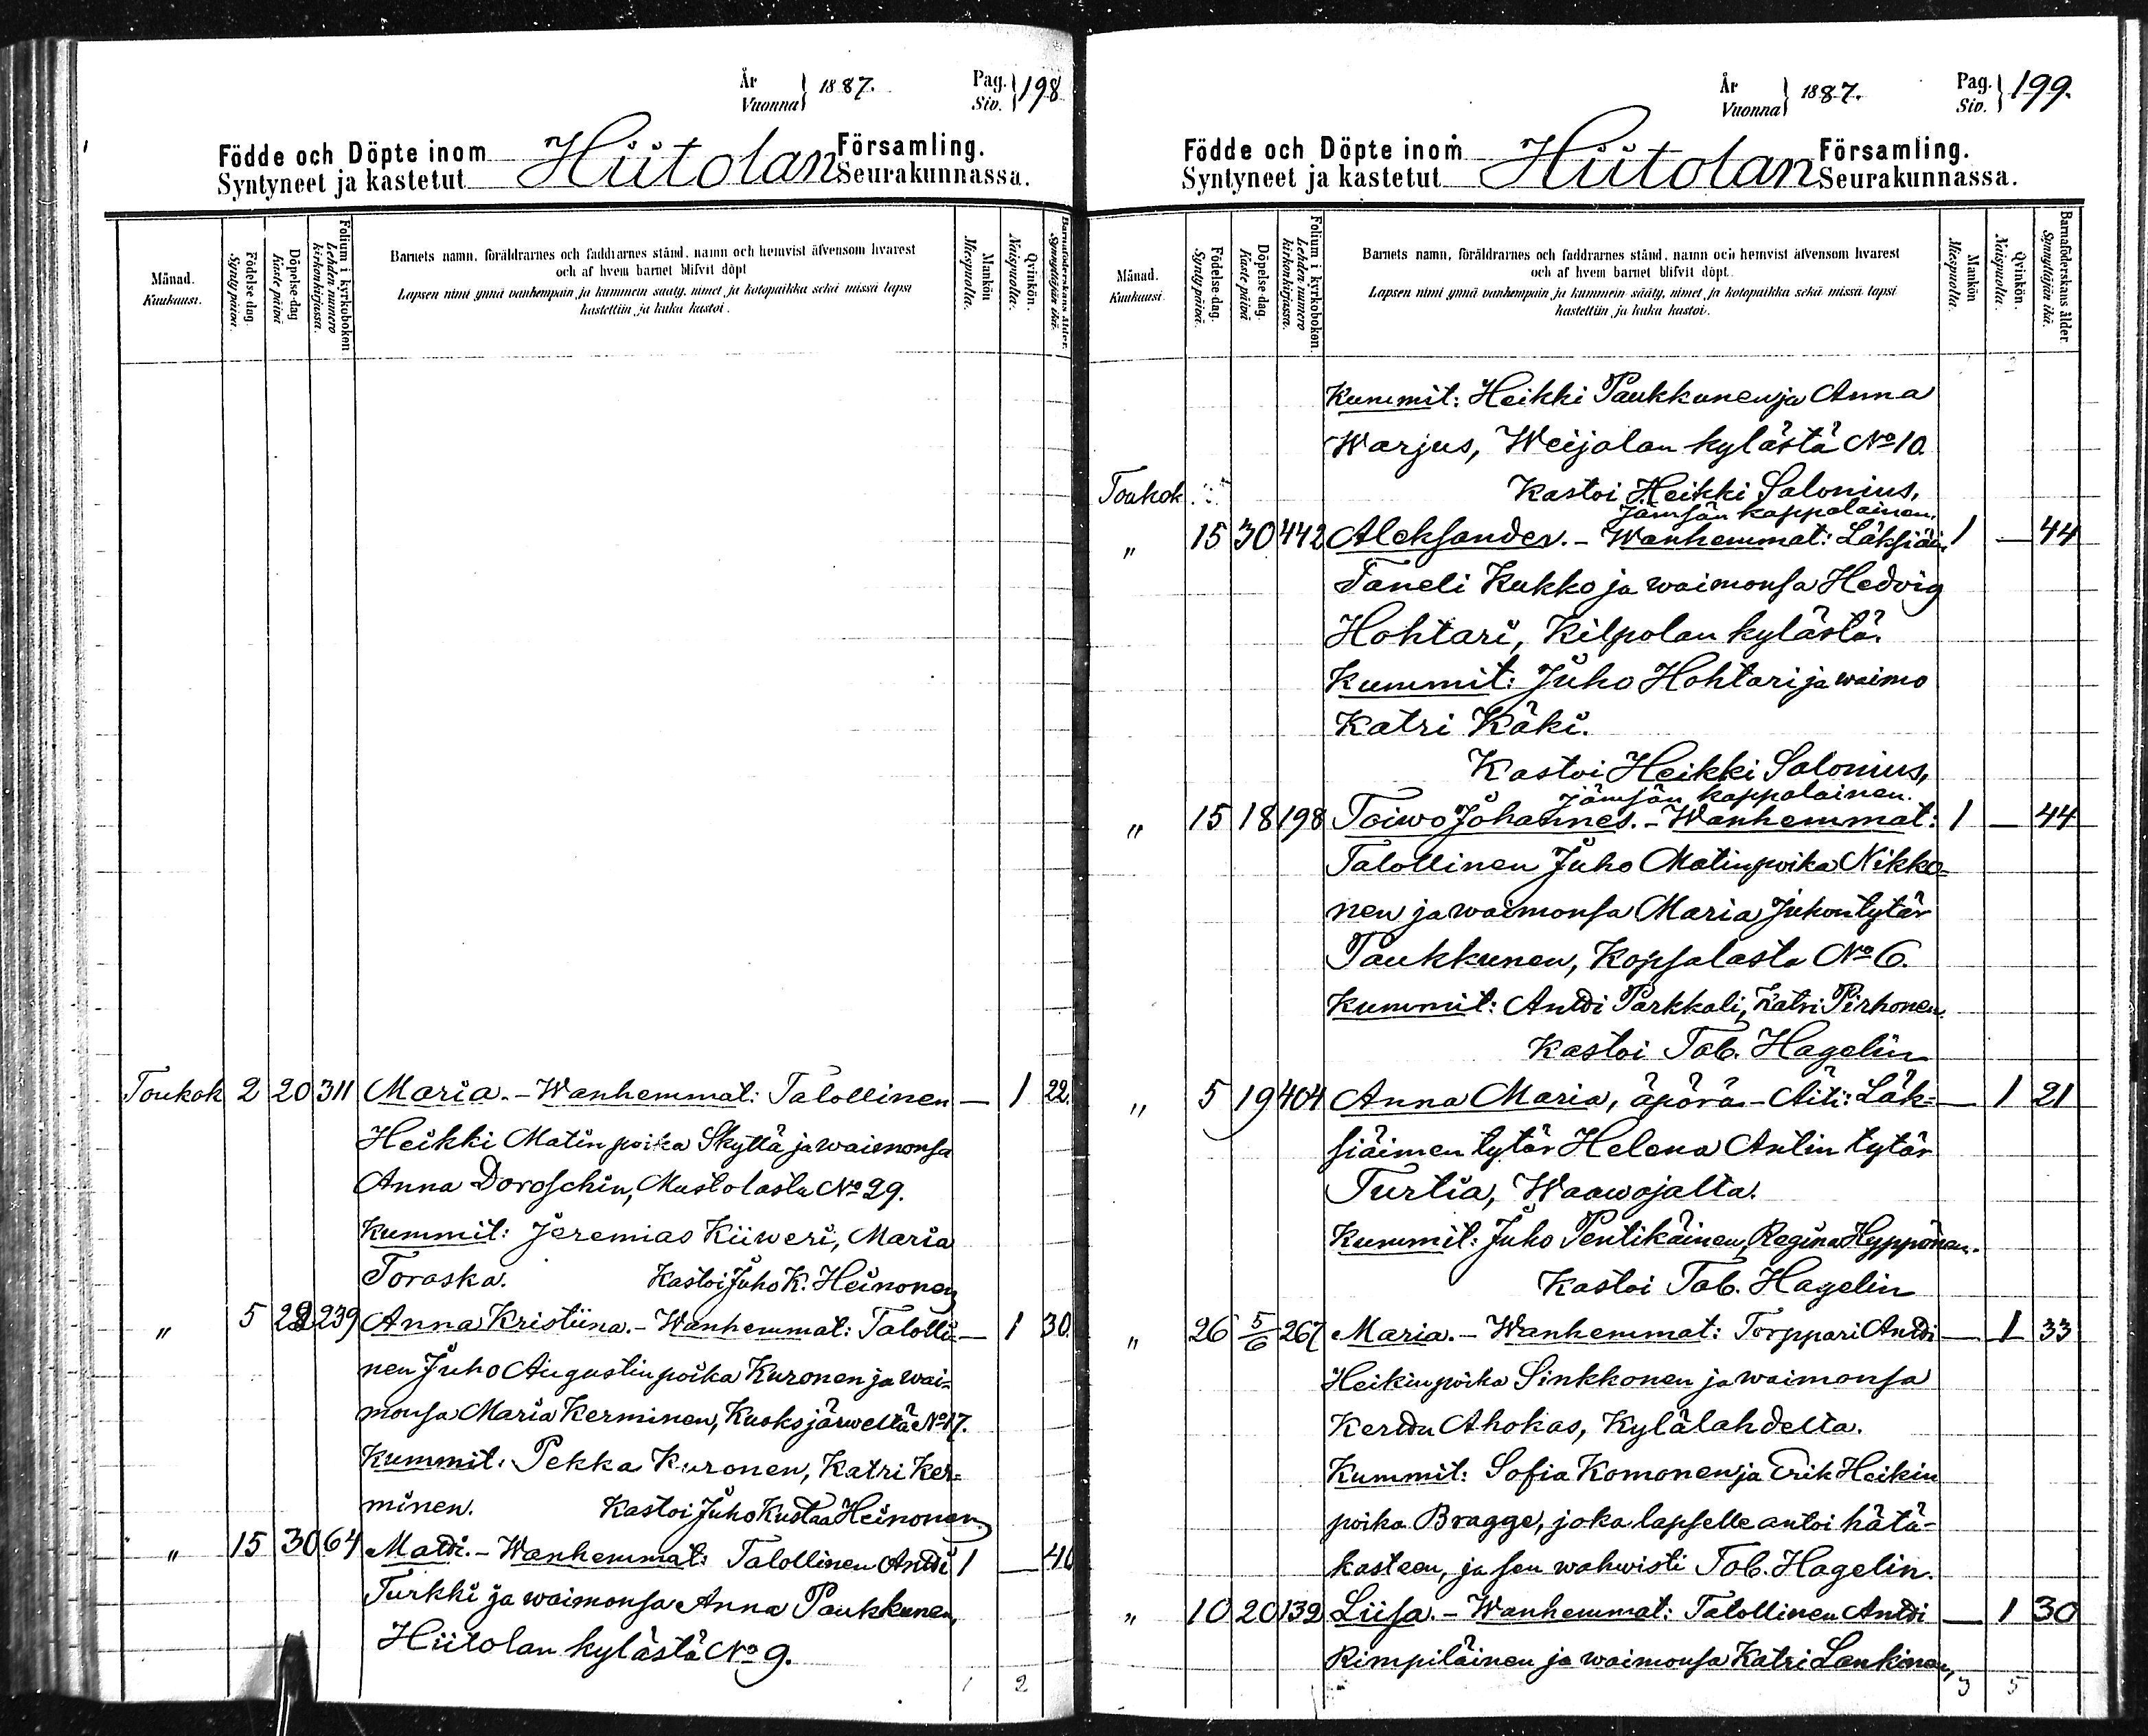 År
Vuonna } 1887.
Pag.
Siv. } 198
Födde och Döpte inom Hiitolan Församling.
Syntyneet ja kastetut Seurakunnassa.
Månad.
Kuukausi.
Födelse-dag.
Synty päivä.
Döpelse-dag
Kaste päivä
Folium i kyrkoboken
Lehden numero kirkonkirjassa.
Barnets namn, föräldrarnes och faddrarnes stånd, namn och hemvist äfvensom hvarest
och af hvem barnet blifvit döpt
Lapsen nimi ynnä vanhempain ja kummein sääty, nimet ja kotopaikka sekä missä lapsi
kastettiin ja kuka kastoi.
Mankön
Miespuolta.
Qvinkön.
Naispuolta.
Barnaföderskans ålder.
Synnyttäjän ikä.
Toukok 2 20 311 Maria. - Wanhemmat: Talollinen — 1 22.
Heikki Matinpoika Skyttä ja waimonsa
Anna Doroschin, Mustolasta No 29.
Kummit: Jeremias Kiiweri, Maria
Toraska. Kastoi Juho K. Heinonen
" 5 22 239 Anna Kristiina. - Wanhemmat: Talolli- — 1 30.
nen Juho Augustinpoika Kuronen ja wai-
monsa Maria Kerminen, Kuoksjärweltä No 17.
Kummit: Pekka Kuronen, Katri Ker=
minen. Kastoi Juho Kustaa Heinonen
" 15 30 64 Matti. - Wanhemmat: Talollinen Antti 1 — 40
Turkki ja waimonsa Anna Paukkunen,
Hiitolan kylästä No 9.
1 2
År
Vuonna } 1887.
Pag.
Siv. } 199.
Födde och Döpte inom Hiitolan Församling.
Syntyneet ja kastetut Seurakunnassa.
Månad.
Kuukausi.
Födelse-dag.
Synty päivä.
Döpelse-dag.
Kaste päivä
Folium i kyrkoboken.
Lehden numero kirkonkirjassa.
Barnets namn, föräldrarnes och faddrarnes stånd, namn och hemvist äfvensom hvarest
och af hvem barnet blifvit döpt.
Lapsen nimi ynnä vanhempain ja kummein sääty, nimet ja kotopaikka sekä missä lapsi
kastettiin ja kuka kastoi.
Mankön
Miespuolta.
Qvinkön.
Naispuolta.
Barnaföderskans ålder.
Synnyttäjän ikä.
Kummit: Heikki Paukkunen ja Anna
Warjus, Weijalan kylästä No 10.
Toukok Kastoi Heikki Salonius,
Jämsän kappalainen.
" 15 30 442 Aleksander. - Wanhemmat: Läksiäin 1 — 44
Taneli Kukko ja waimonsa Hedvig
Hohtari, Kilpolan kylästä.
Kummit: Juho Hohtari ja waimo
Katri Käki.
Kastoi Heikki Salonius,
Jämsän kappalainen.
" 15 18 198 Toiwo Johannes. - Wanhemmat: 1 — 44
Talollinen Juho Matinpoika Nikko=
nen ja waimonsa Maria Juhontytär
Paukkunen, Kopsalasta No 6.
Kummit: Antti Parkkali, Katri Pirhonen.
Kastoi Tob. Hagelin
" 5 19 404 Anna Maria, äpärä - Äiti: Läk= — 1 21
siäimen tytär Helena Antin tytär
Turtia, Waawojalta.
Kummit: Juho Pentikäinen, Regina Hyppönen.
Kastoi Tob. Hagelin
" 26 5/6 267 Maria. - Wanhemmat: Torppari Antti — 1 33
Heikinpoika Sinkkonen ja waimonsa
Kerttu Ahokas, Kylälahdelta.
Kummit: Sofia Komonen ja Erik Heikin
poika Bragge, joka lapselle antoi hätä-
kasteen, ja sen wahwisti Tob. Hagelin.
" 10 20 132 Liisa. - Wanhemmat: Talollinen Antti — 1 30
Rimpiläinen ja waimonsa Katri Lankinen,
3 5